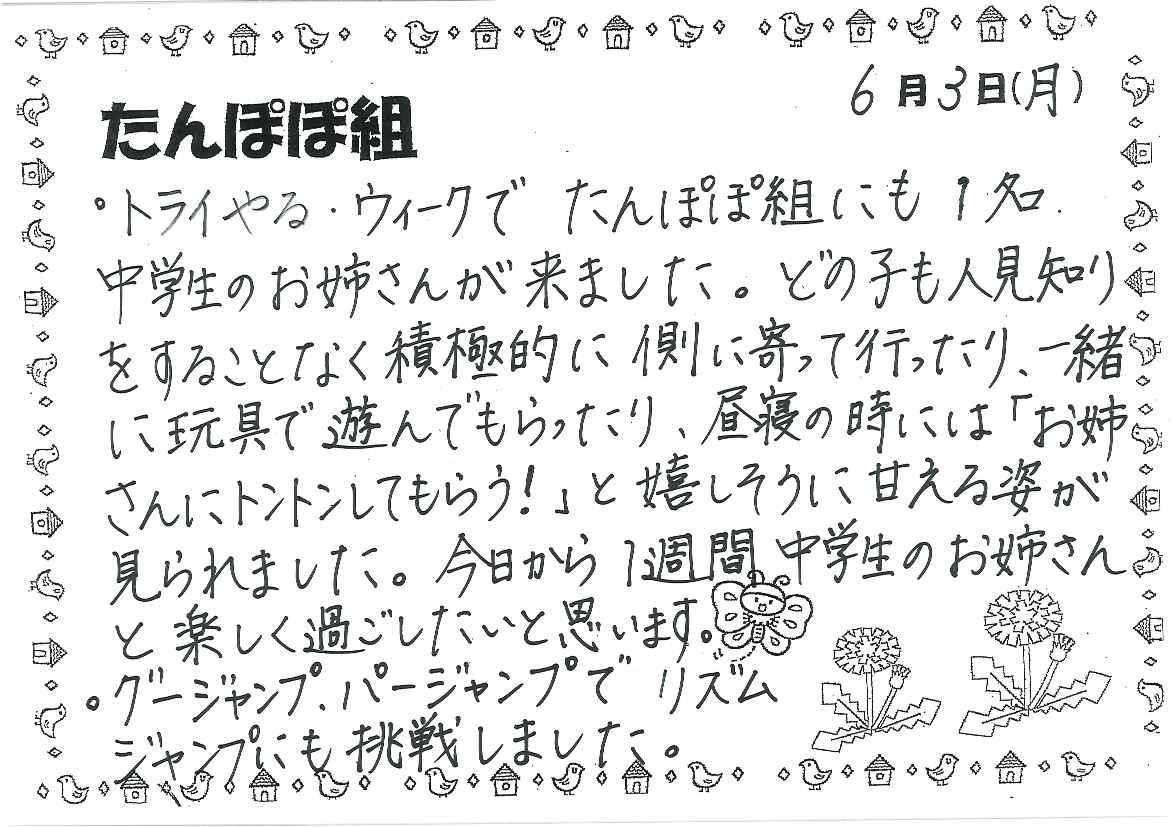 6月3日(月)
たんぽぽ組
・トライやる・ウィークで たんぽぽ組にも 1名
中学生のお姉さんが来ました。どの子も人見知り
をすることなく積極的に側に寄って行ったり、一緒
に玩具で遊んでもらったり、昼寝の時には「お姉
さんにトントンしてもらう!」と嬉しそうに甘える姿が
見られました。今日から1週間中学生のお姉さん
と楽しく過ごしたいと思います。
・グージャンプ、パージャンプで リズム
ジャンプにも挑戦しました。